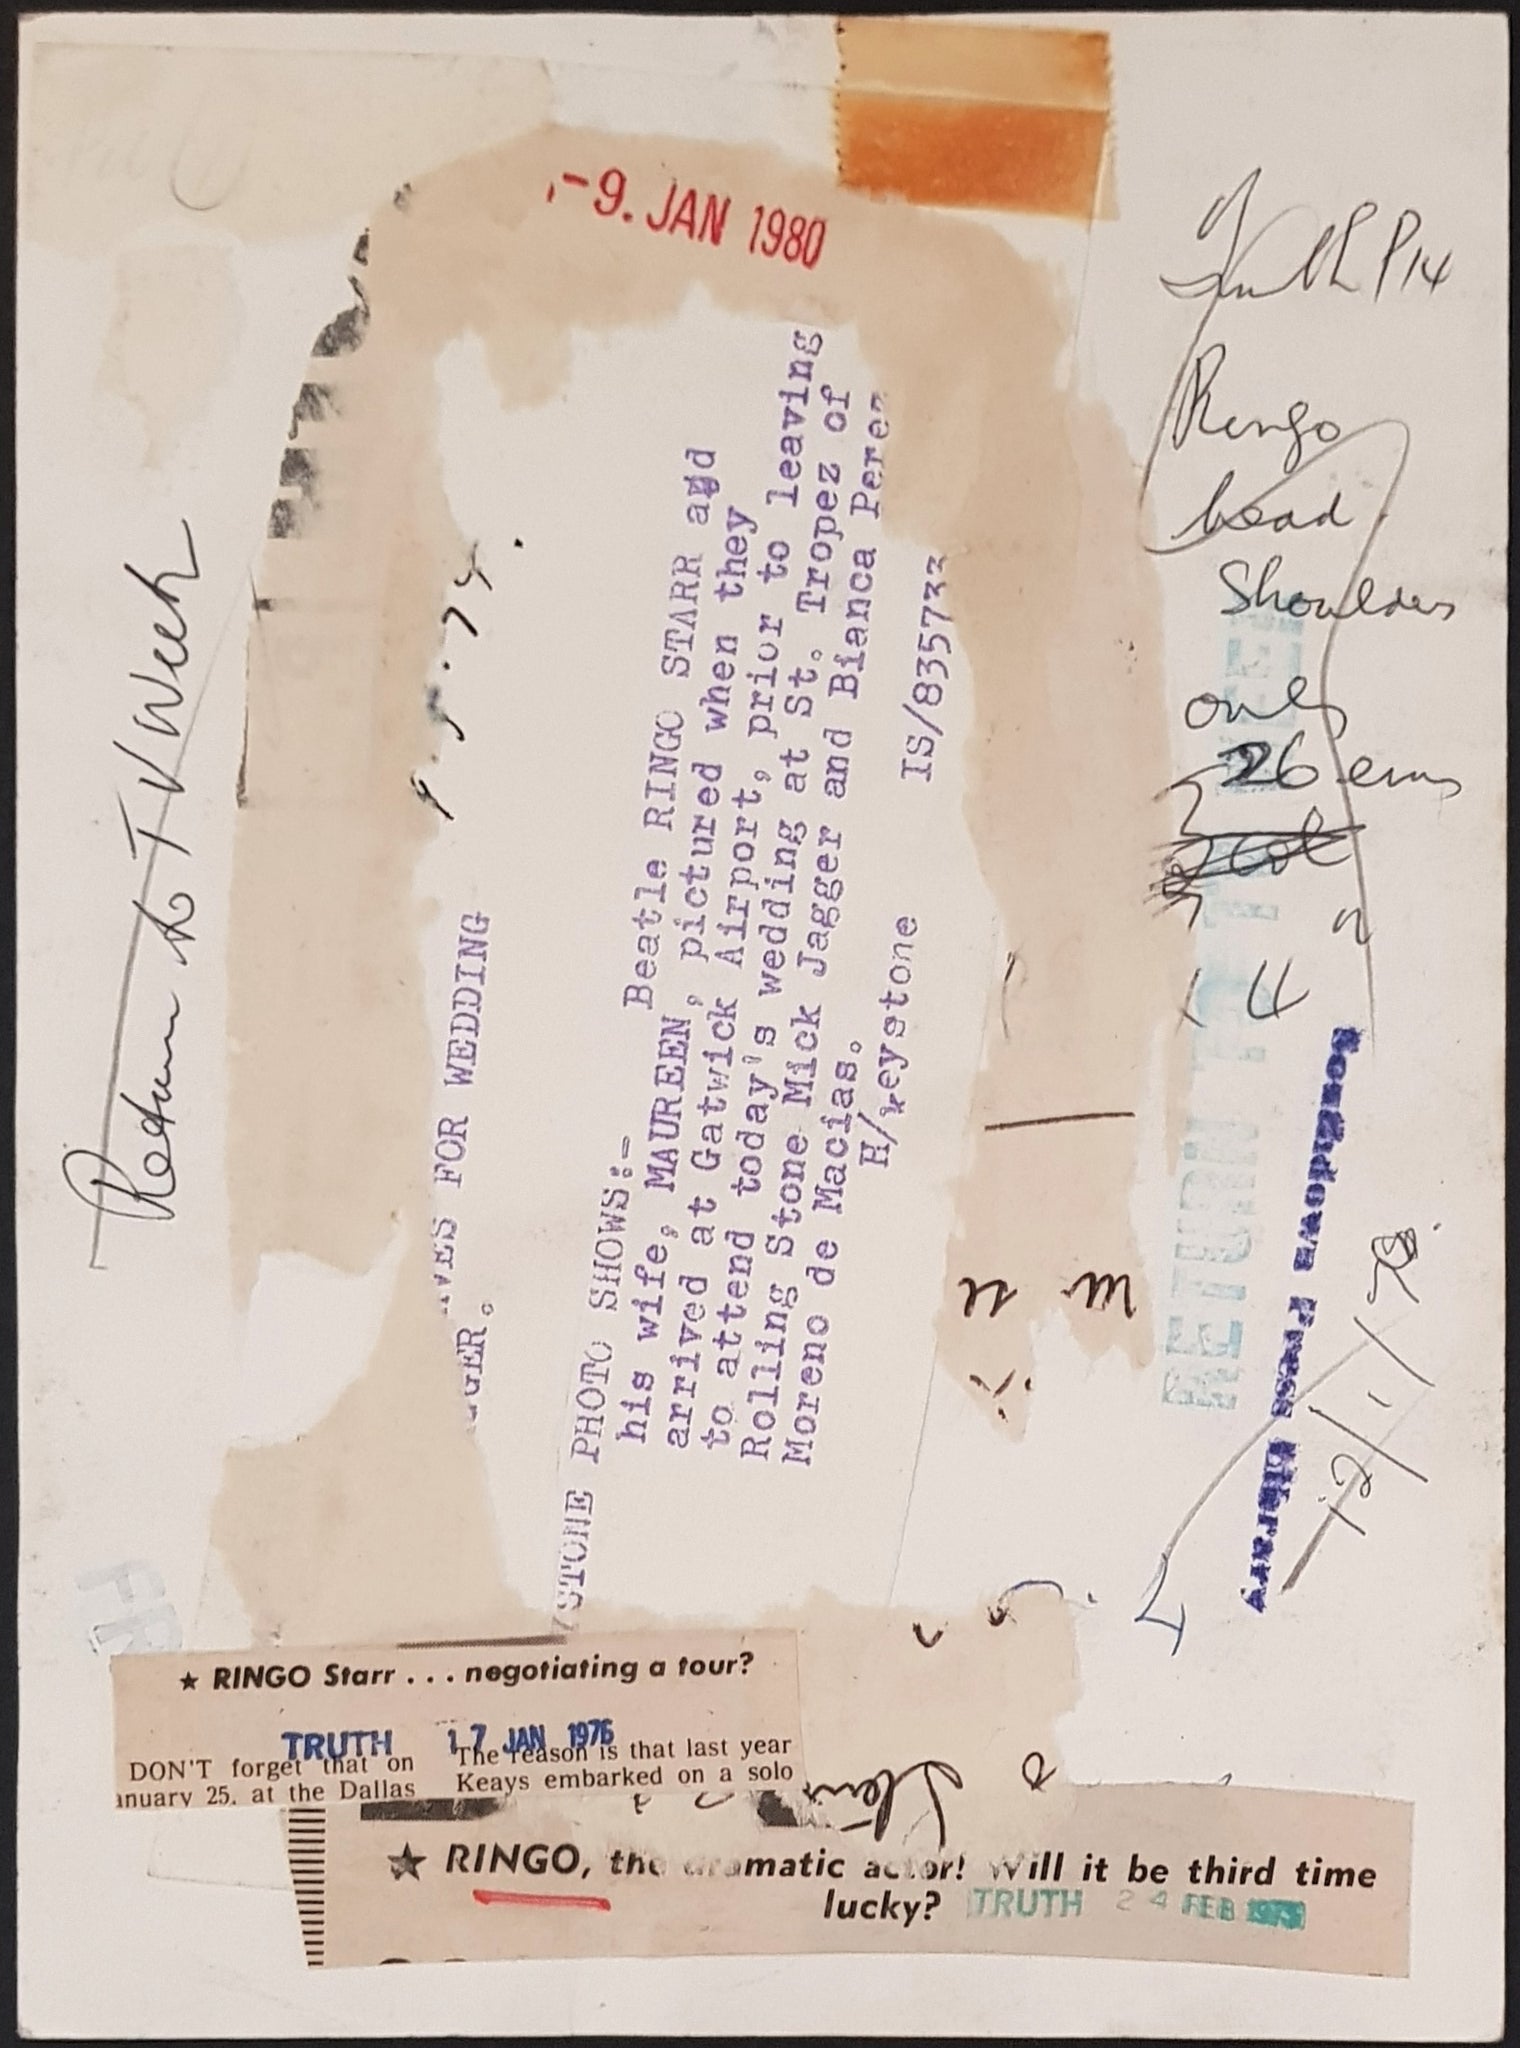 -9. JAN 1980
Truth P14
Ringo
head
Shoulders
only
26 ems
Return to T V Week
FOR WEDDING
GGER.
STONE PHOTO SHOWS:-
Beatle RINGO STARR and
his wife, MAUREEN, pictured when they
arrived at Gatwick Airport, prior to leaving
to attend today's wedding at St. Tropez of
Rolling Stone Mick Jagger and Bianca Perez
Moreno de Macias.
H/keystone IS/835733
Southdown Press Library
★ RINGO Starr . . . negotiating a tour?
TRUTH 17 JAN 1976
DON'T forget that on
anuary 25. at the Dallas
The reason is that last year
Keays embarked on a solo
★ RINGO, the dramatic actor! Will it be third time
lucky? TRUTH 24 FEB 1973